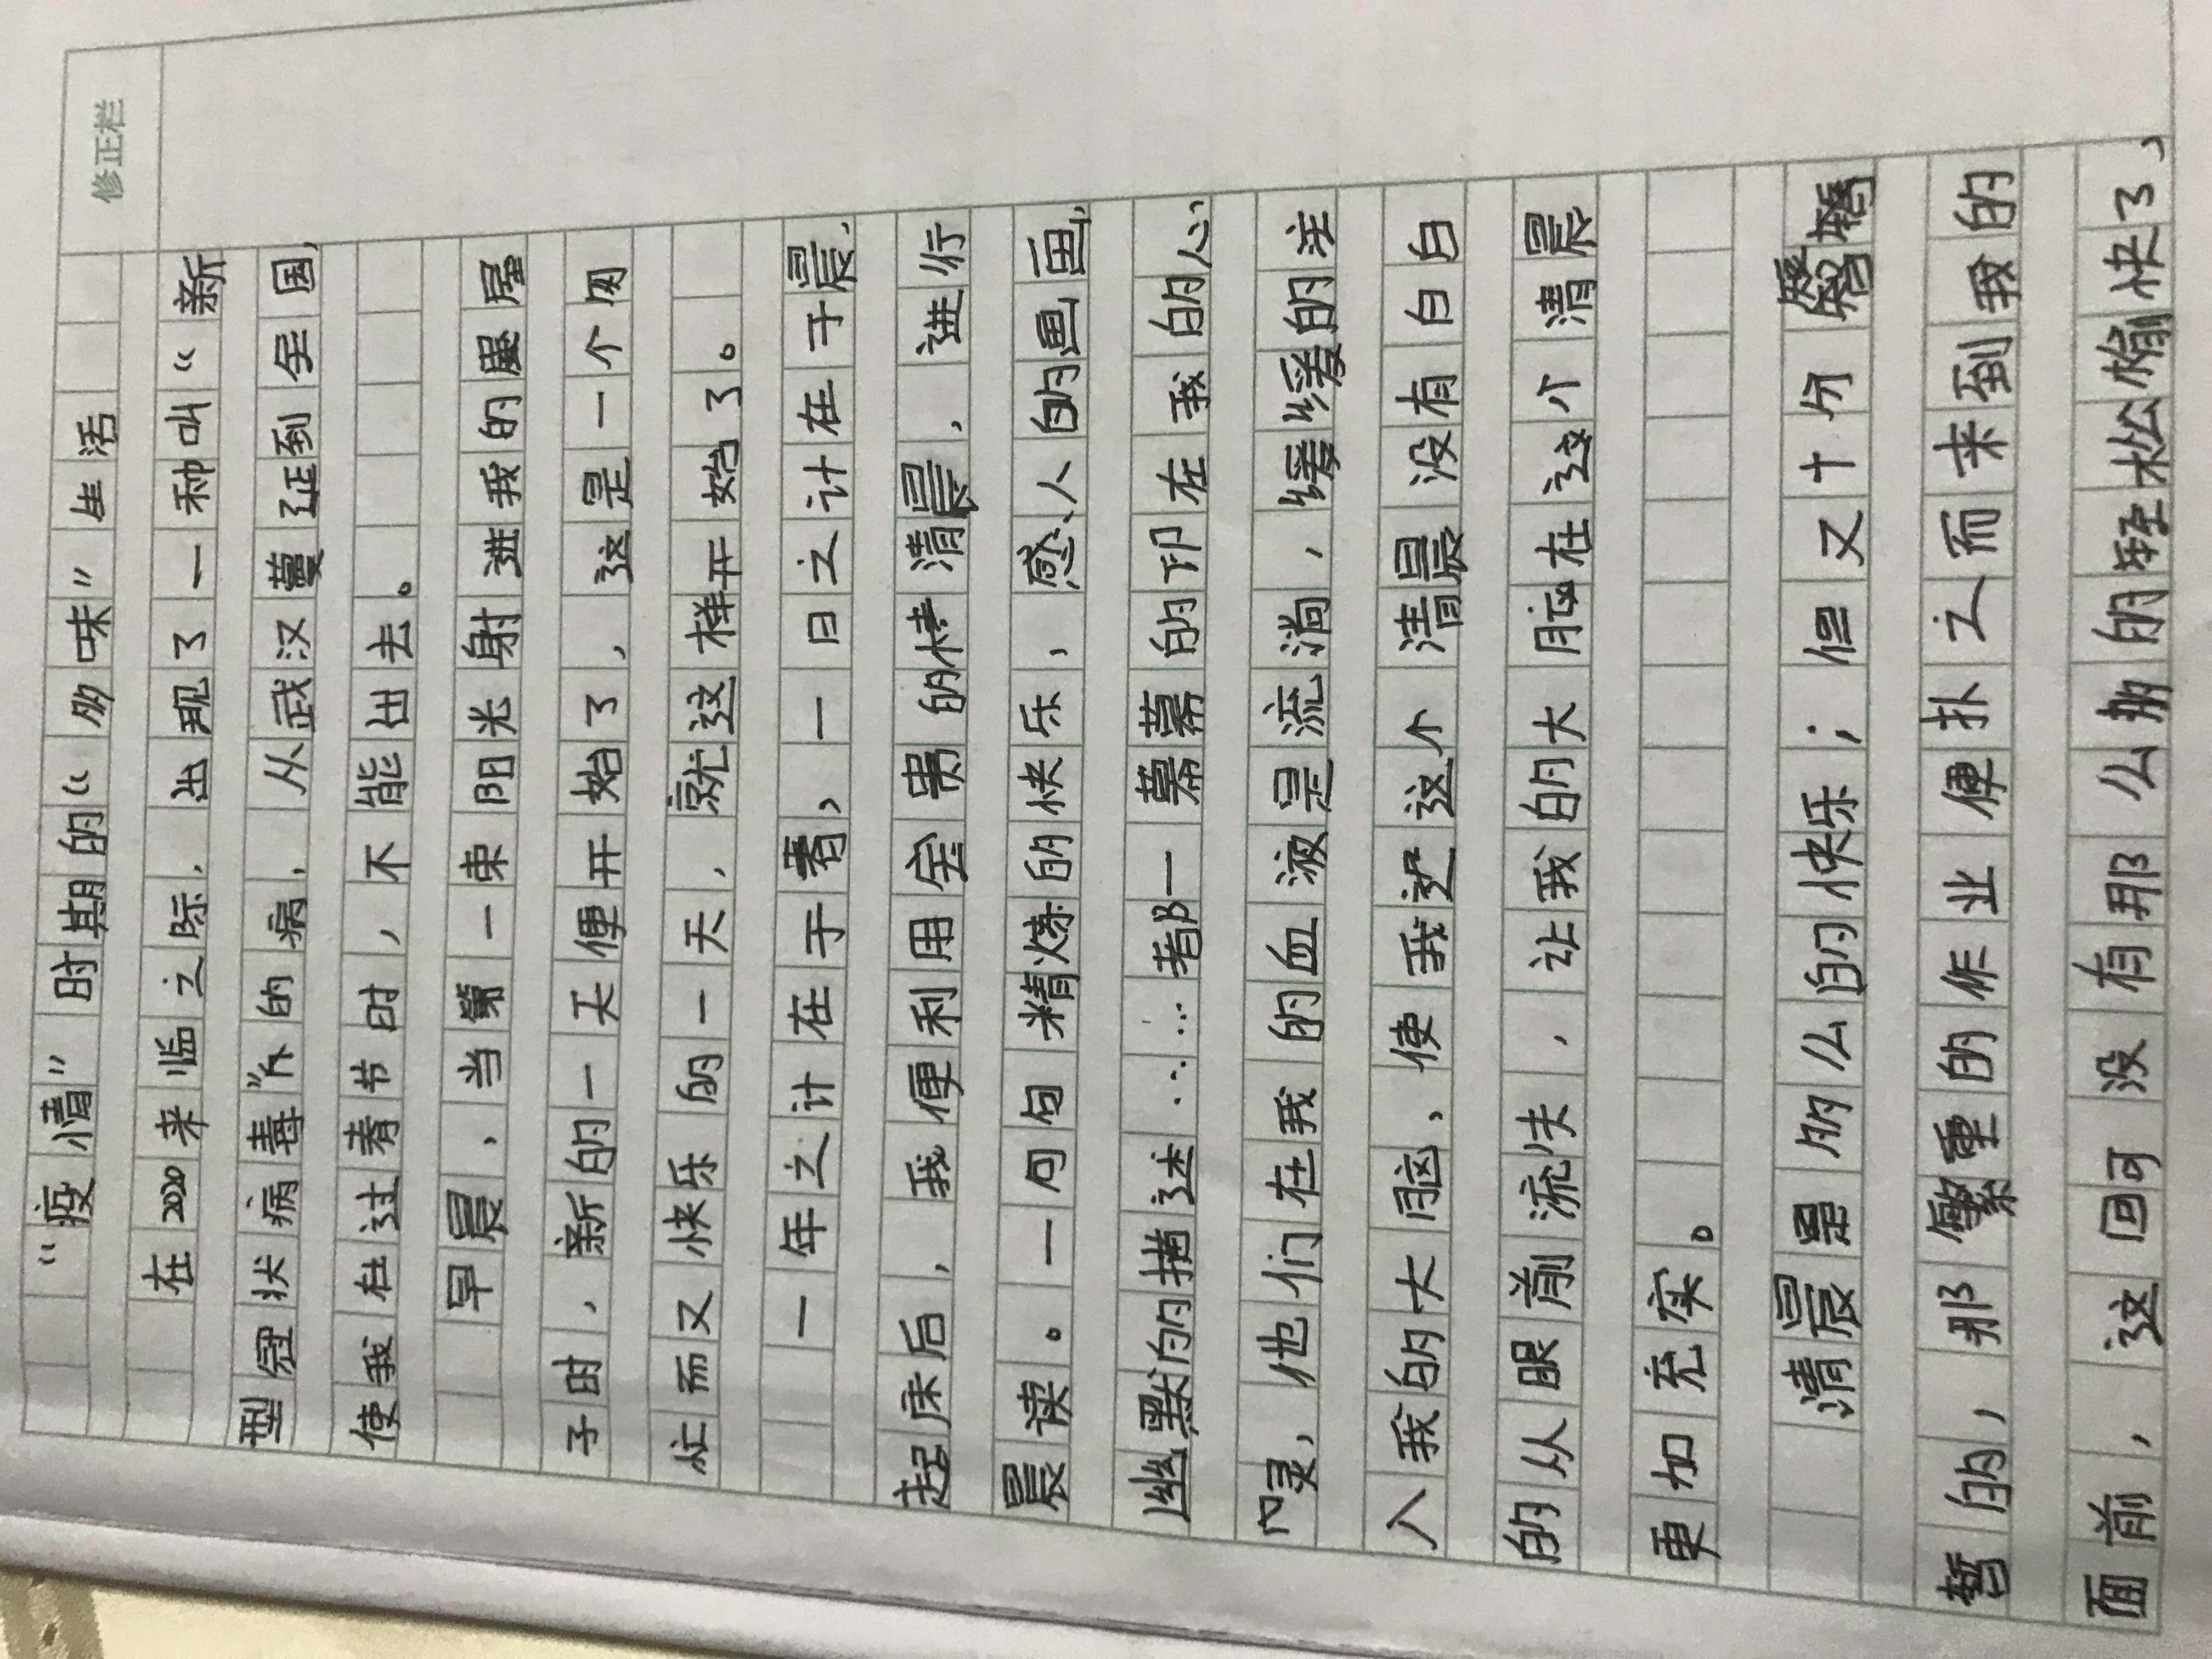 修正栏
“疫情”时期的“多味”生活
在2020来临之际,出现了一种叫“新
型冠状病毒”的病,从武汉蔓延到全国,
使我在过春节时,不能出去。
早晨,当第一束阳光射进我的屋
子时,新的一天便开始了,这是一个匆
忙而又快乐的一天,就这样开始了。
一年之计在于春,一日之计在于晨.
起床后,我便利用宝贵的清晨,进行
晨读。一句句精炼的快乐,感人的画面,
幽默的描述……都一幕幕的印在我的心
灵,他们在我的血液里流淌,缓缓的注
入我的大脑,使我这个清晨没有白白
的从眼前流失,让我的大脑在这个清晨
更加充实。
清晨是多么的快乐;但又十分短
暂的,那繁重的作业便扑之而来到我的
面前,这回可没有那么的轻松愉快了,